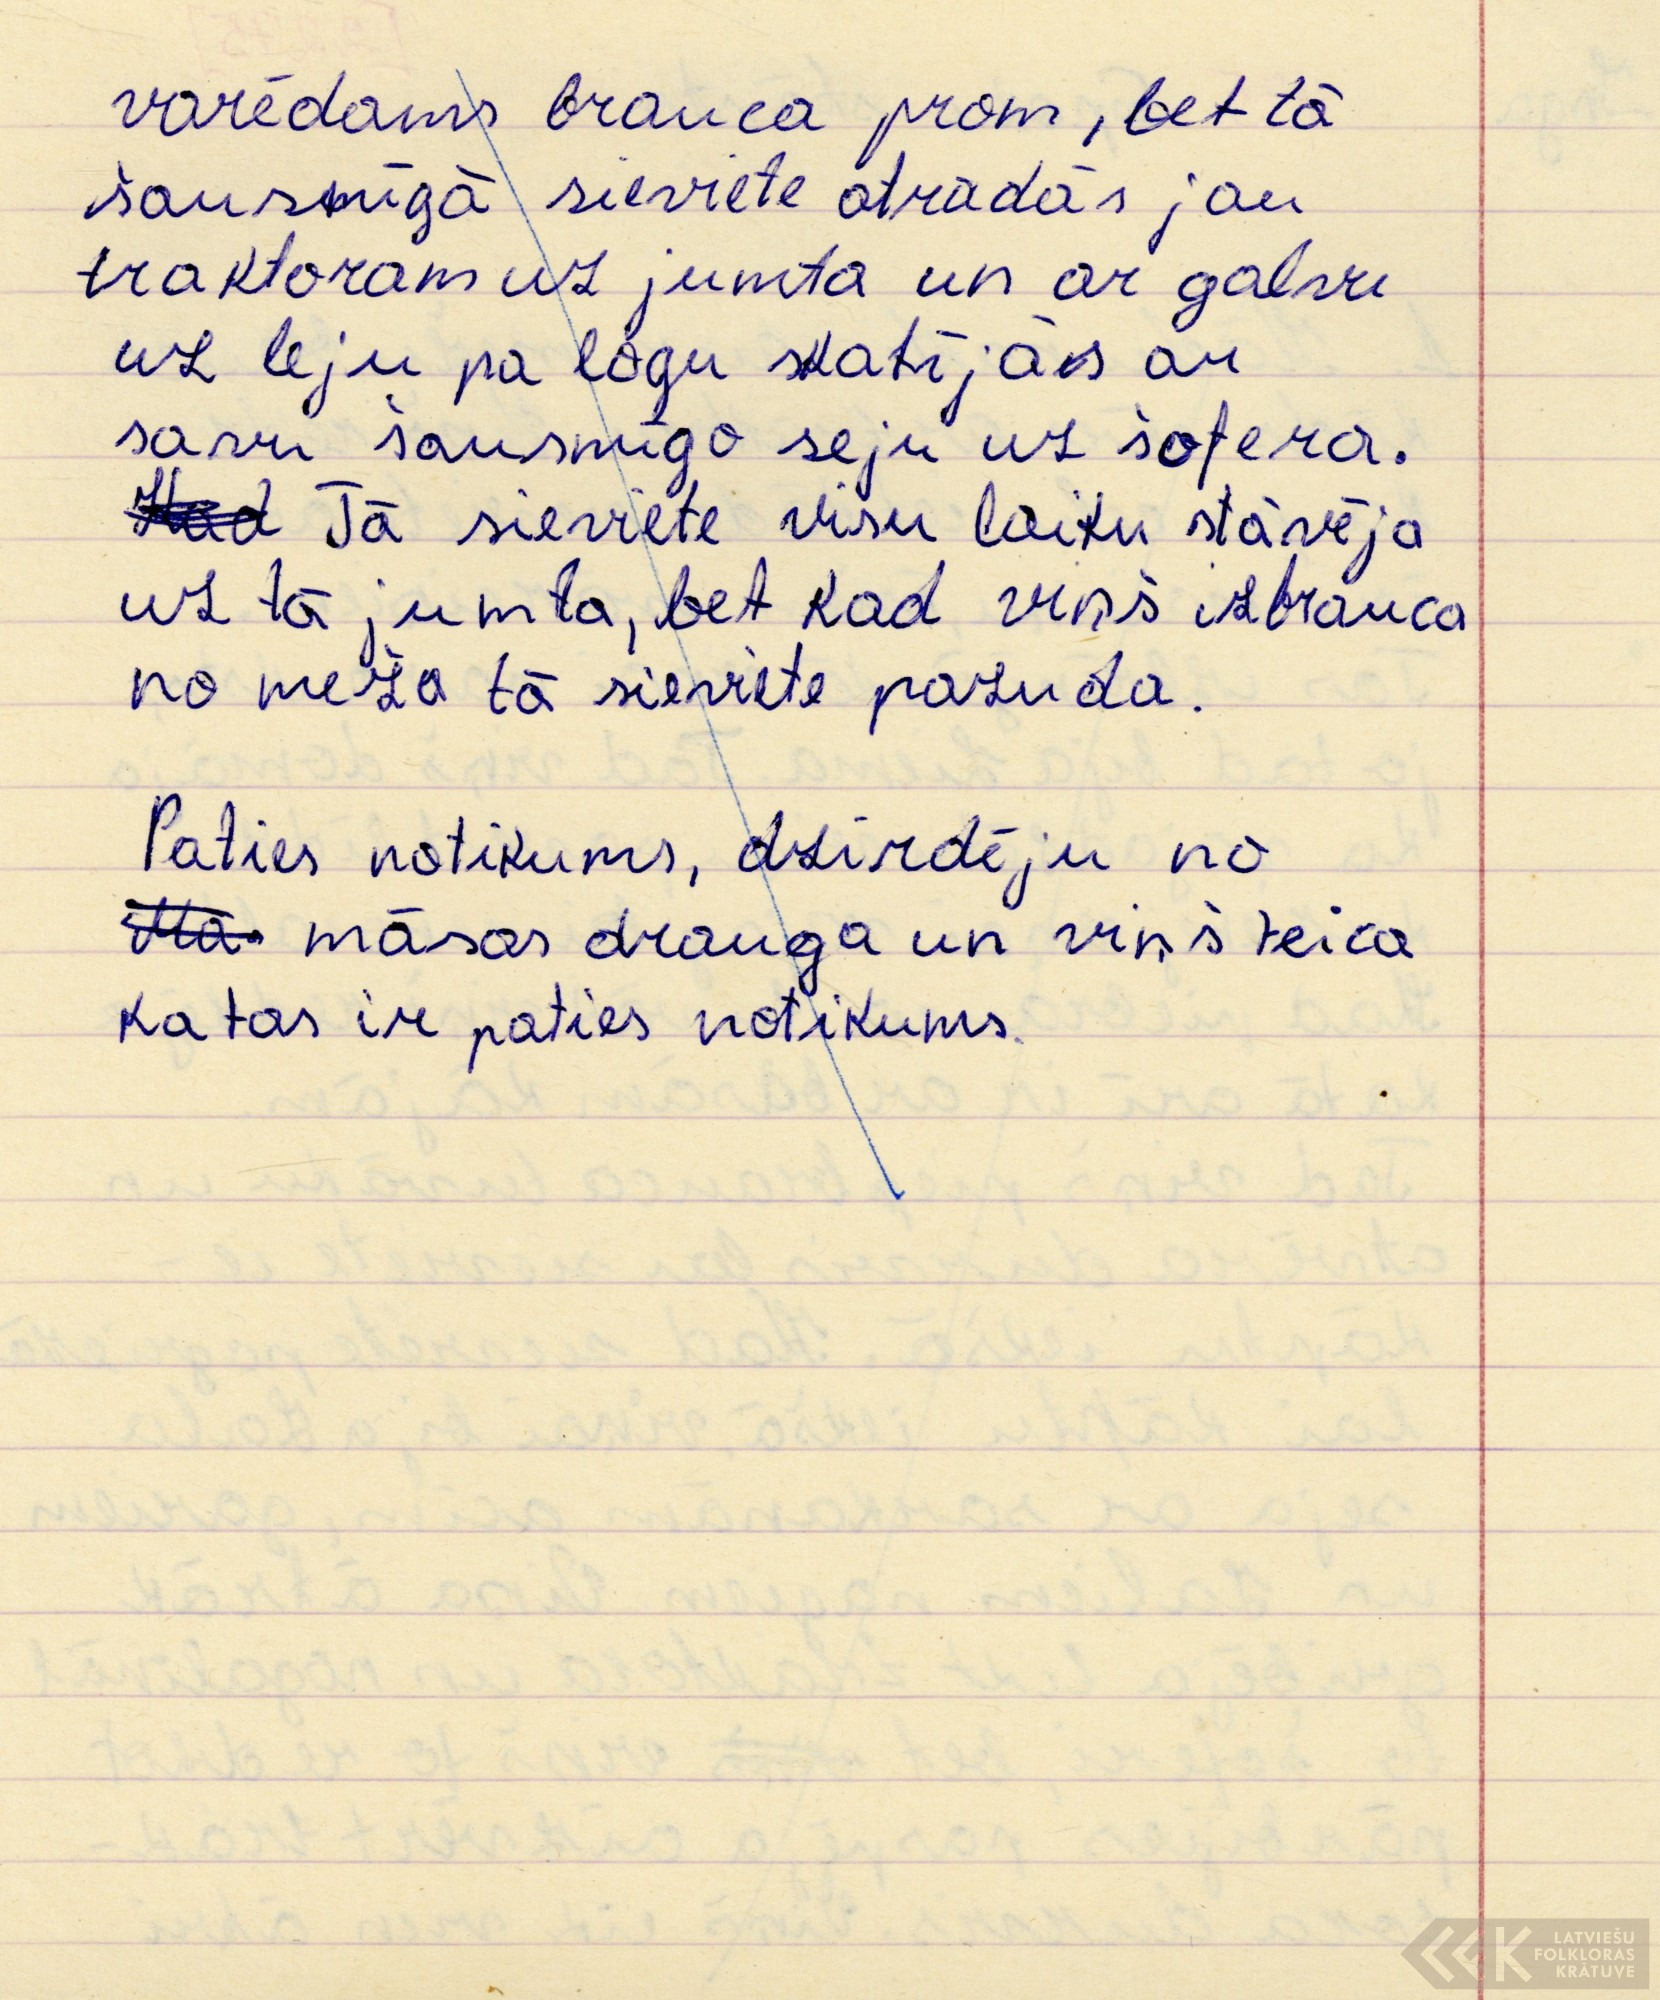 varēdams brauca prom, bet tā
šausmīgā sieviete atradās jau
traktoram uz jumta un ar galvu
uz leju pa logu skatījās ar
savu šausmīgo seju uz šofera.
Kad Tā sieviete visu laiku stāvēja
uz tā jumta, bet kad viņš izbrauca
no meža tā sieviete pazuda.
Paties notikums, dzirdēju no
māsas drauga un viņš teica
ka tas ir paties notikums.
LATVIEŠU
FOLKLORAS
KRĀTUVE